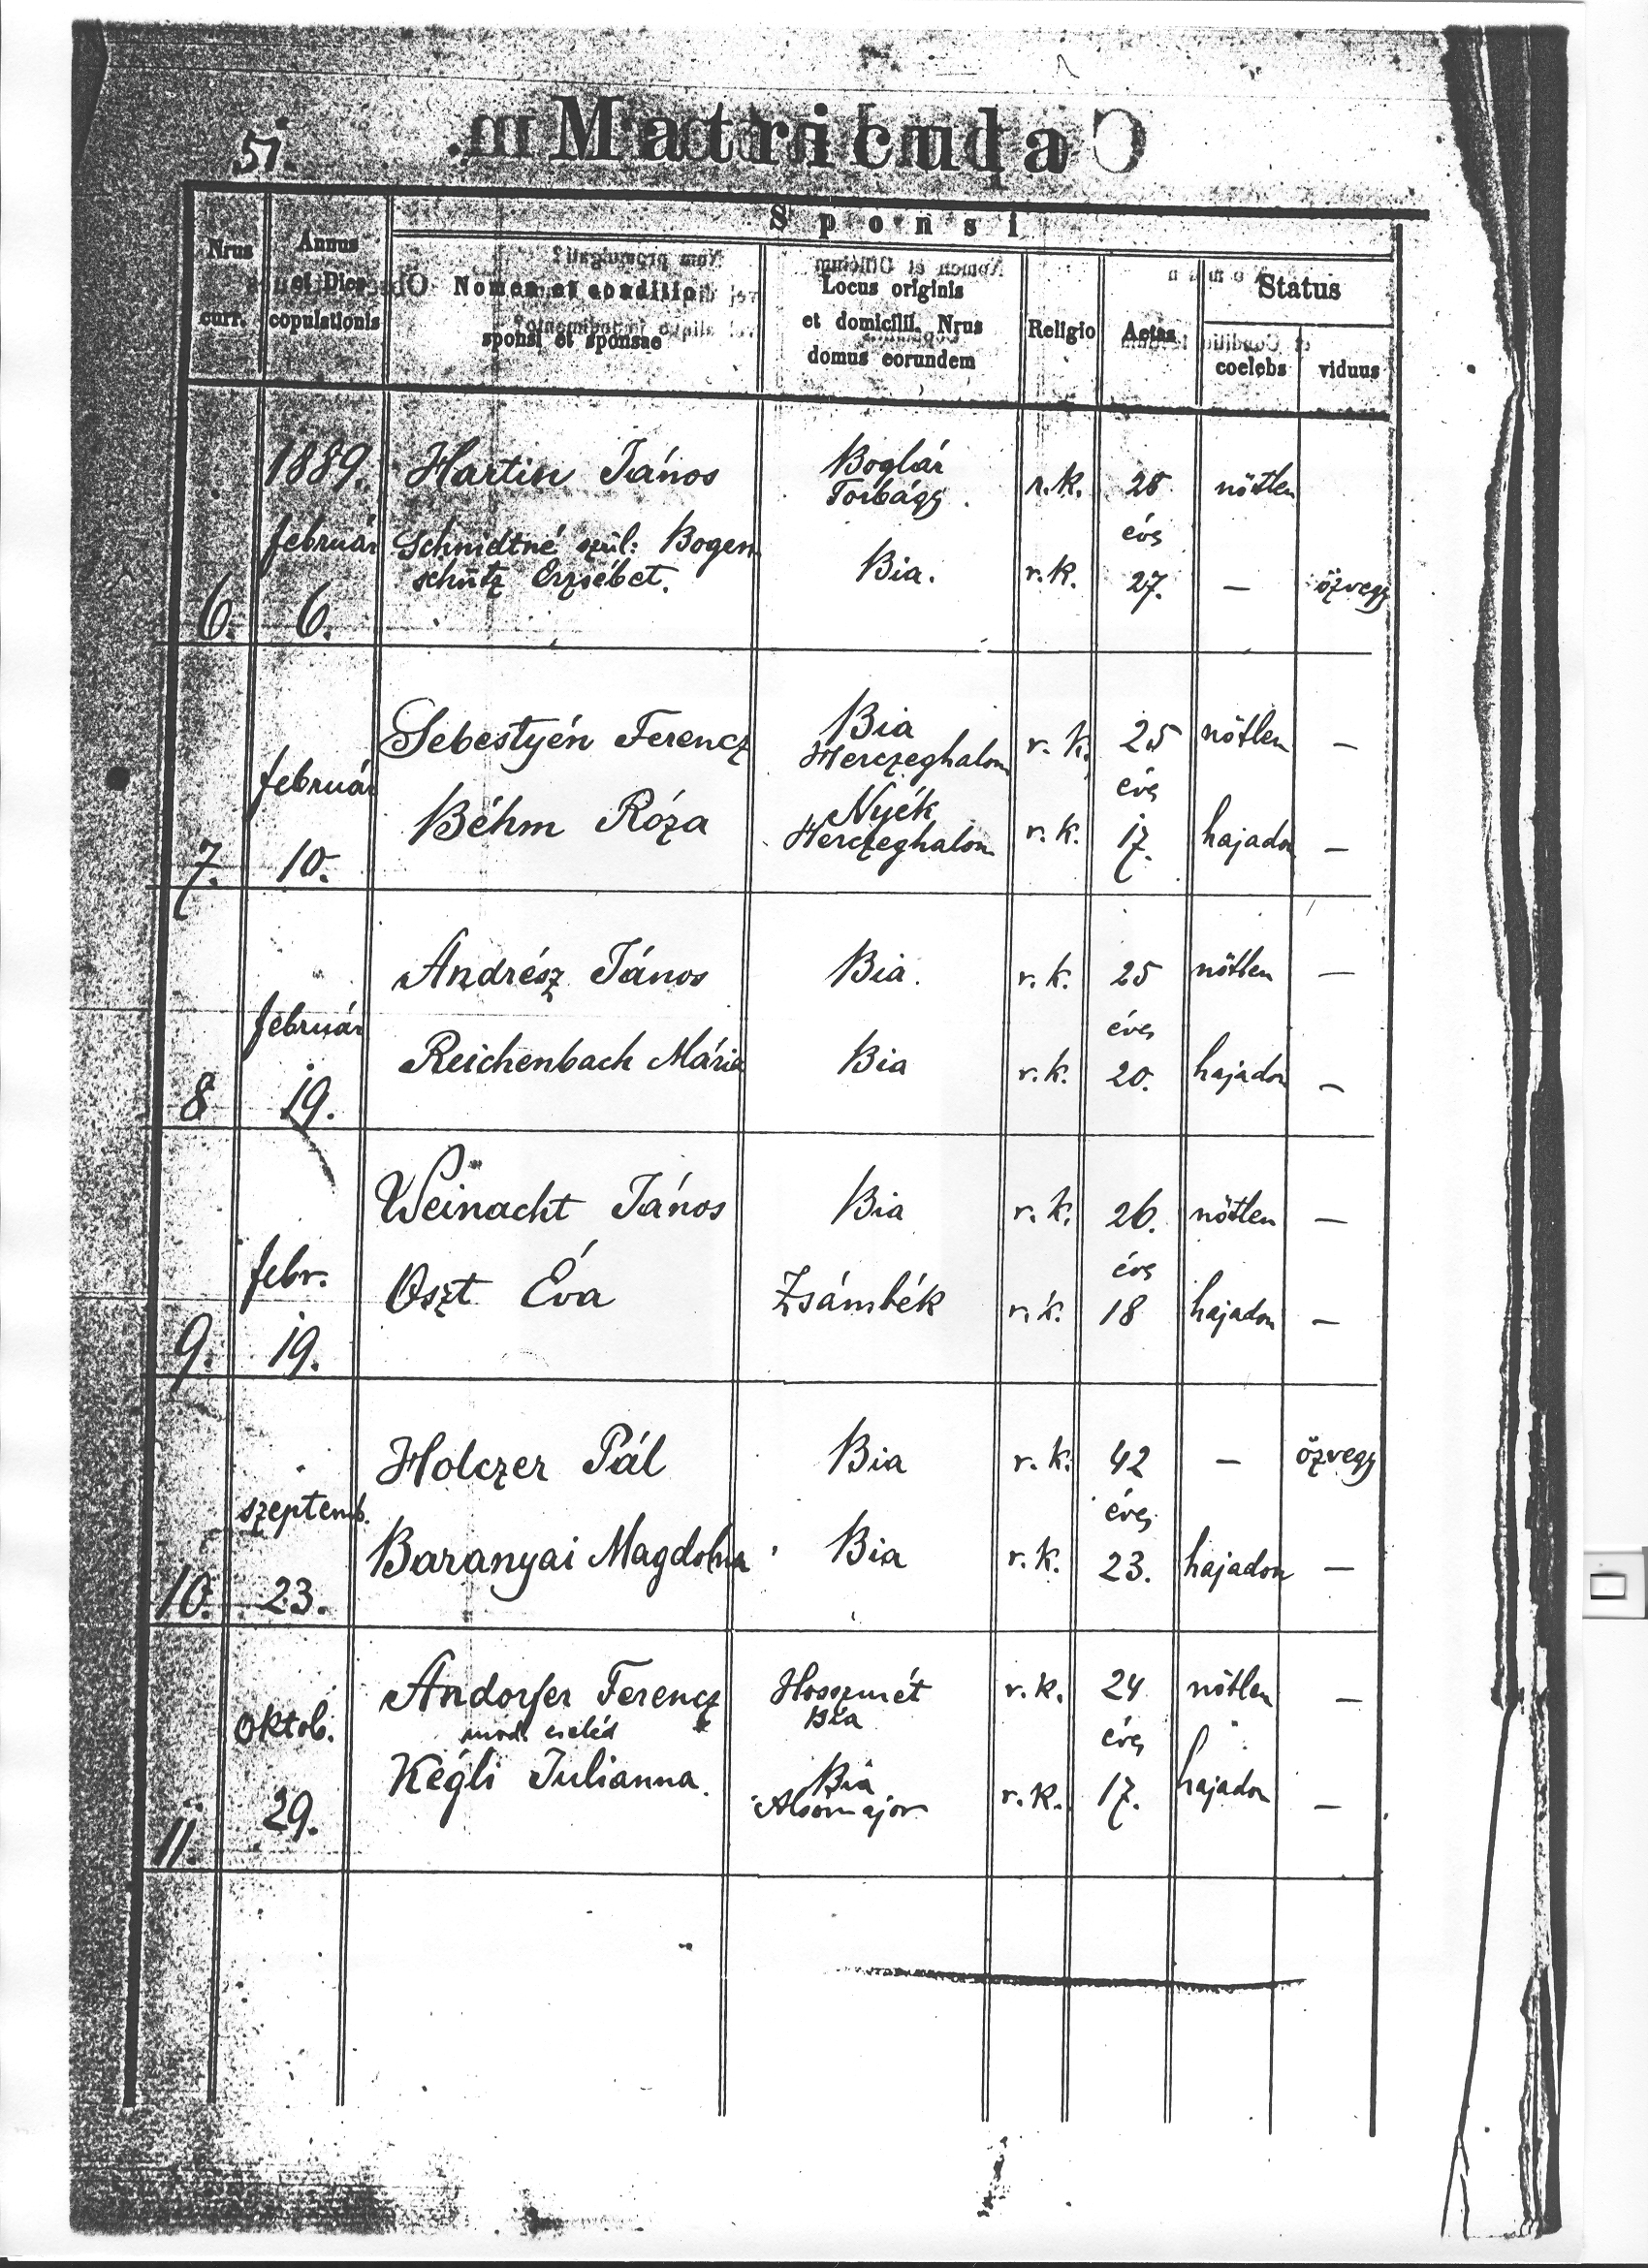 51.
Matricula
Sponsi
Nrus curr.
Annus et Dies copulationis
Nomen et conditio sponsi et sponsae
Locus originis et domicilii. Nrus domus eorundem
Religio
Aetas
Status
coelebs
viduus
1889. Hartin János Boglár Torbágy. r.k. 28 nőtlen
február Schmidtné szül: Bogen éves
schütz Erzsébet. Bia. r.k. 27. — özvegy
6. 6.
Sebestyén Ferencz Bia Herczeghalom r. k. 25 nőtlen —
február éves
Béhm Róza Nyék Herczeghalom r. k. 17. hajadon —
7. 10.
Andrész János Bia. r. k. 25 nőtlen —
február éves
Reichenbach Mária Bia r. k. 20. hajadon —
8 19.
Weinacht János Bia r. k. 26. nőtlen —
febr. éves
Oszt Éva Zsámbék r. k. 18 hajadon —
9. 19.
Holczer Pál Bia r. k. 42 — özvegy
szeptemb. éves
Baranyai Magdolna Bia r. k. 23. hajadon —
10. 23.
Andorfer Ferencz r. k. 24 nőtlen —
oktob. cseléd Bia éves
Kégli Julianna. Bia r. k. 17. hajadon —
29. Alsómajor
11.